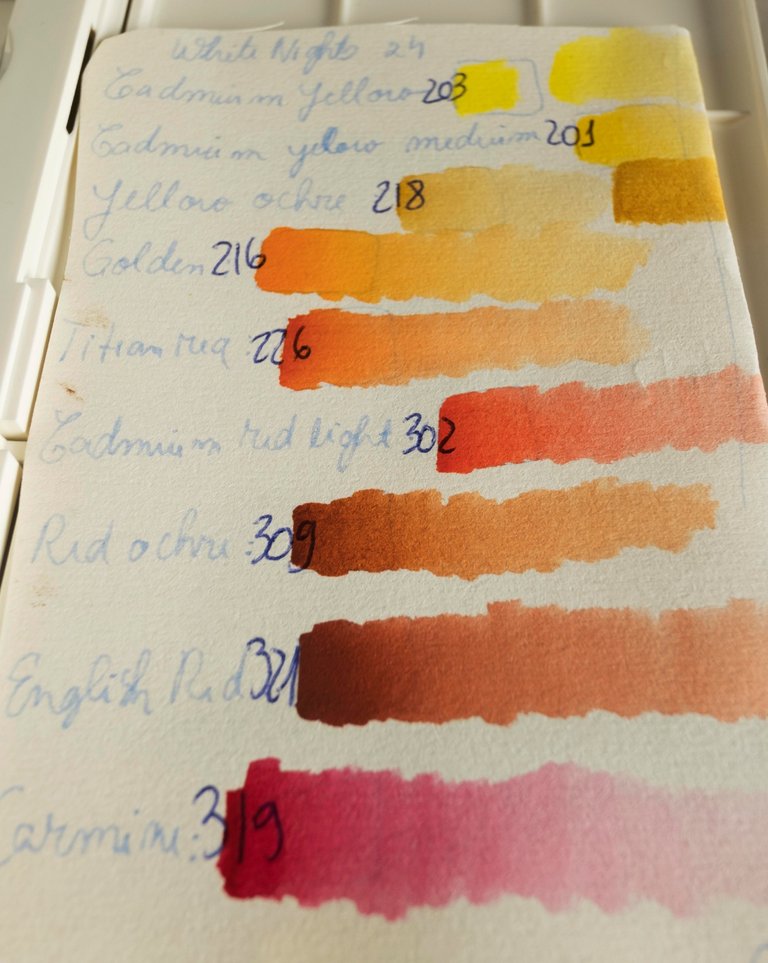 White Nights 24
Cadmium Yellow 203
Cadmium yelow medium 201
Yellow ochre 218
Golden 216
Titian red 226
Cadmium red light 302
Red ochre: 309
English Red 321
Carmine: 319